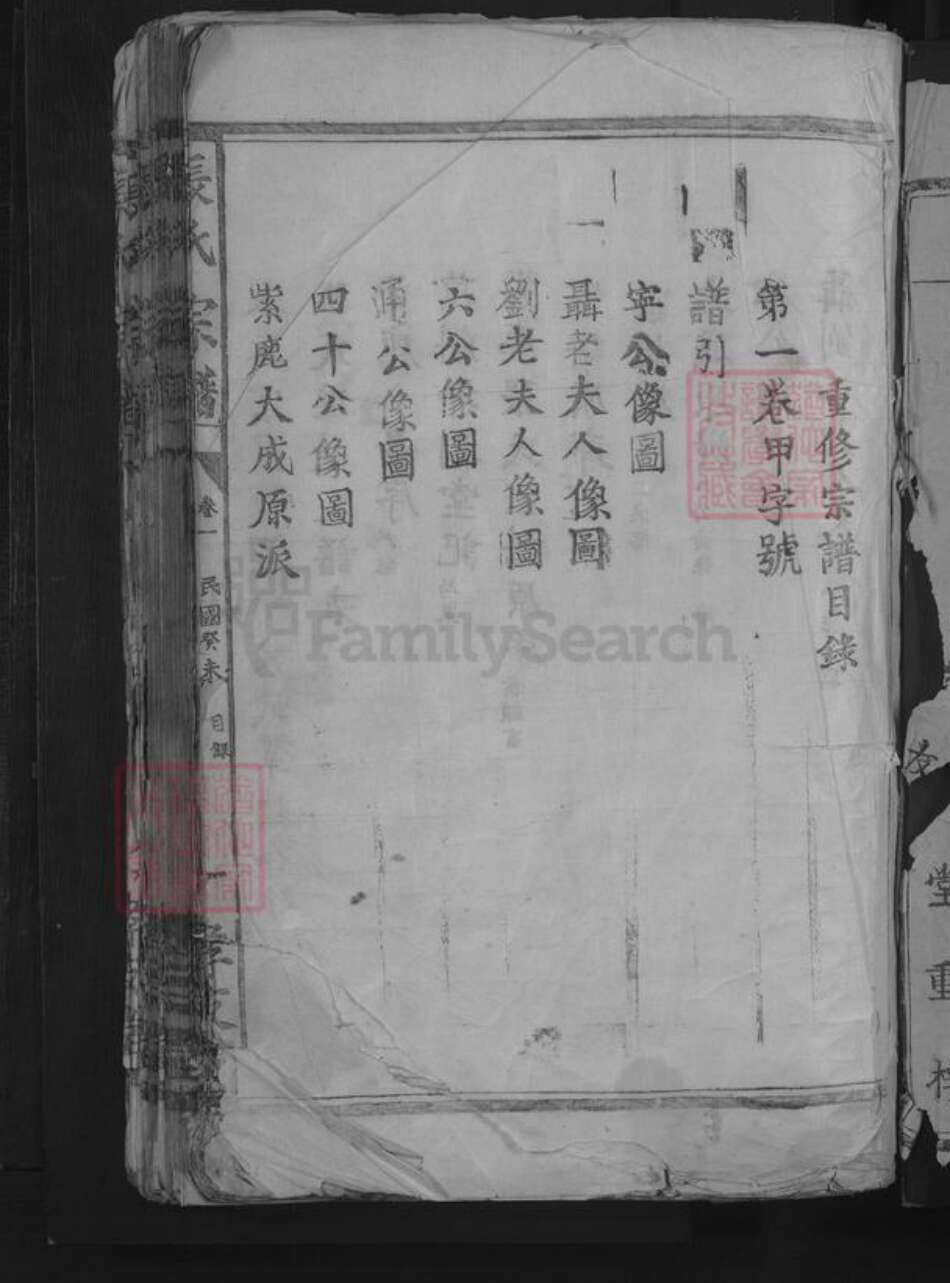 重修宗譜目錄
第一卷甲字號
譜引
寧公像圖
聶老夫人像圖
劉老夫人像圖
六公像圖
通公像圖
四十公像圖
紫鹿大成原派
張氏宗譜
卷一
民國癸未
目錄
一
FamilySearch
堂重